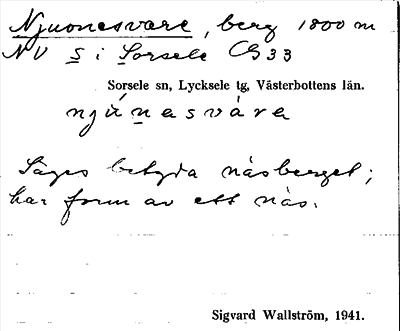 Njuonesvare, berg 1800 m
NV S i Sorsele CG 33
Sorsele sn, Lycksele tg, Västerbottens län.
njúnasvàra
Säges betyda näsberget;
har form av ett näs.
Sigvard Wallström, 1941.